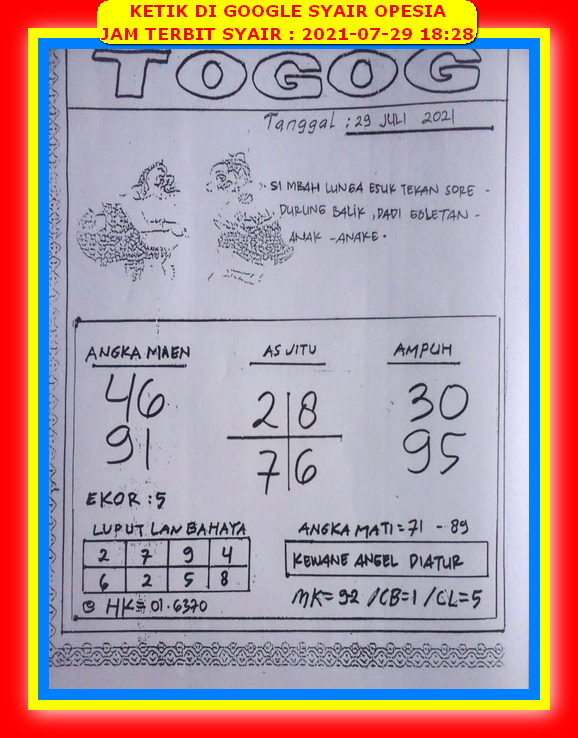 KETIK DI GOOGLE SYAIR OPESIA
JAM TERBIT SYAIR : 2021-07-29 18:28
TOGOG
Tanggal : 29 JULI 2021
SI MBAH LUNGA ESUK TEKAN SORE -
DURUNG BALIK , DADI GOLETAN -
ANAK - ANAKE .
ANGKA MAEN
46
91
EKOR : 5
AS JITU
2 8
7 6
AMPUH
30
95
LUPUT LAN BAHAYA
2 7 9 4
6 2 5 8
HK = 01.6370
ANGKA MATI = 71 - 89
KEWANE ANGEL DIATUR
MK = 92 / CB = 1 / CL = 5